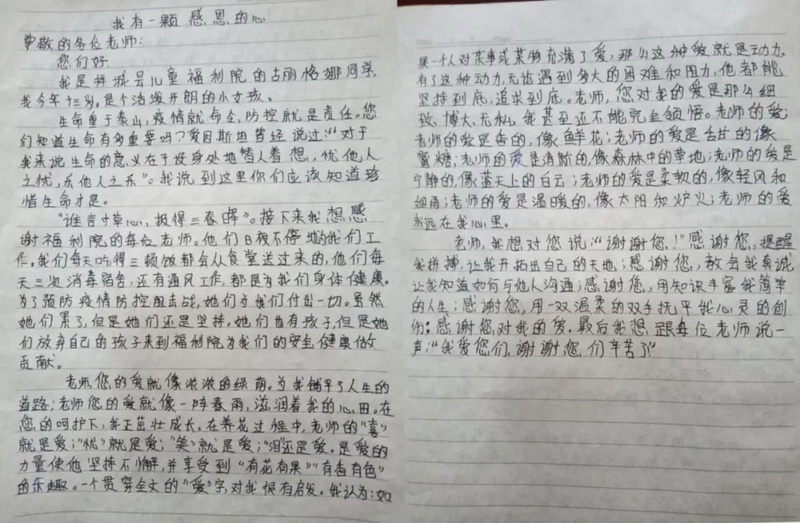 我有一颗感恩的心
尊敬的各位老师:
您们好
我是井城县儿童福利院的古丽格娜同学,
我今年十三岁,是个活泼开朗的小女孩。
生命重于泰山,疫情就命令,防控就是责任。您
们知道生命有多重要吗?爱因斯坦曾经说过:"对于
我来说生命的意义在于设身处地替人着想,忧他人
之忧,乐他人之乐"。我说到这里你们应该知道珍
惜生命才是。
"谁言寸草心,报得三春晖"。接下来我想感
谢福利院的每位老师。他们日夜不停地为我们工
作,我们每天吃得三顿饭都会从食堂送过来的,他们每
天三次消毒宿舍,还有通风工作,都是为我们身体健康。
为了预防疫情防控阻击战,她们为我们付出一切。虽然
她们累了,但是她们还是坚持,她们也有孩子,但是她
们放弃自己的孩子来到福利院为我们的安全健康做
贡献。
老师,您的爱就像浓浓的绿荫。为我铺平了人生的
道路;老师您的爱就像一阵春雨,滋润着我的心田。在
您的呵护下,我正茁壮成长,在养花过程中,老师的"喜"
就是爱;"忧"就是爱;"笑"就是爱;"泪"还是爱。是爱的
力量使他坚持不懈,并享受到"有花有果""有香有色"
的乐趣。一个贯穿全文的"爱"字,对我很有启发。我认为:如
果一个人对某事或某物充满了爱,那么这种爱就是动力,
有了这种动力,无论遇到多大的困难和阻力,他都能
坚持到底,追求到底。老师,您对我的爱是那么细
致、博大、无私,我甚至还不能完全领悟。老师的爱;
老师的爱是香的,像鲜花;老师的爱是甜的像
蜜糖;老师的爱是清新的,像森林中的草地;老师的爱是
宁静的,像蓝天上的白云;老师的爱是柔软的,像轻风和
细雨;老师的爱是温暖的,像太阳和炉火;老师的爱
永远在我心里。
老师,我想对您说:"谢谢您!"感谢您,提醒
我拼搏,让我开拓出自己的天地;感谢您,教会我真诚
让我知道如何与他人沟通;感谢您,用知识丰富我简单
的人生;感谢您,用一双温柔的双手抚平我心灵的创
伤;感谢您,对我的爱。最后我想跟每位老师说一
声:"我爱您们,谢谢您,们辛苦了"